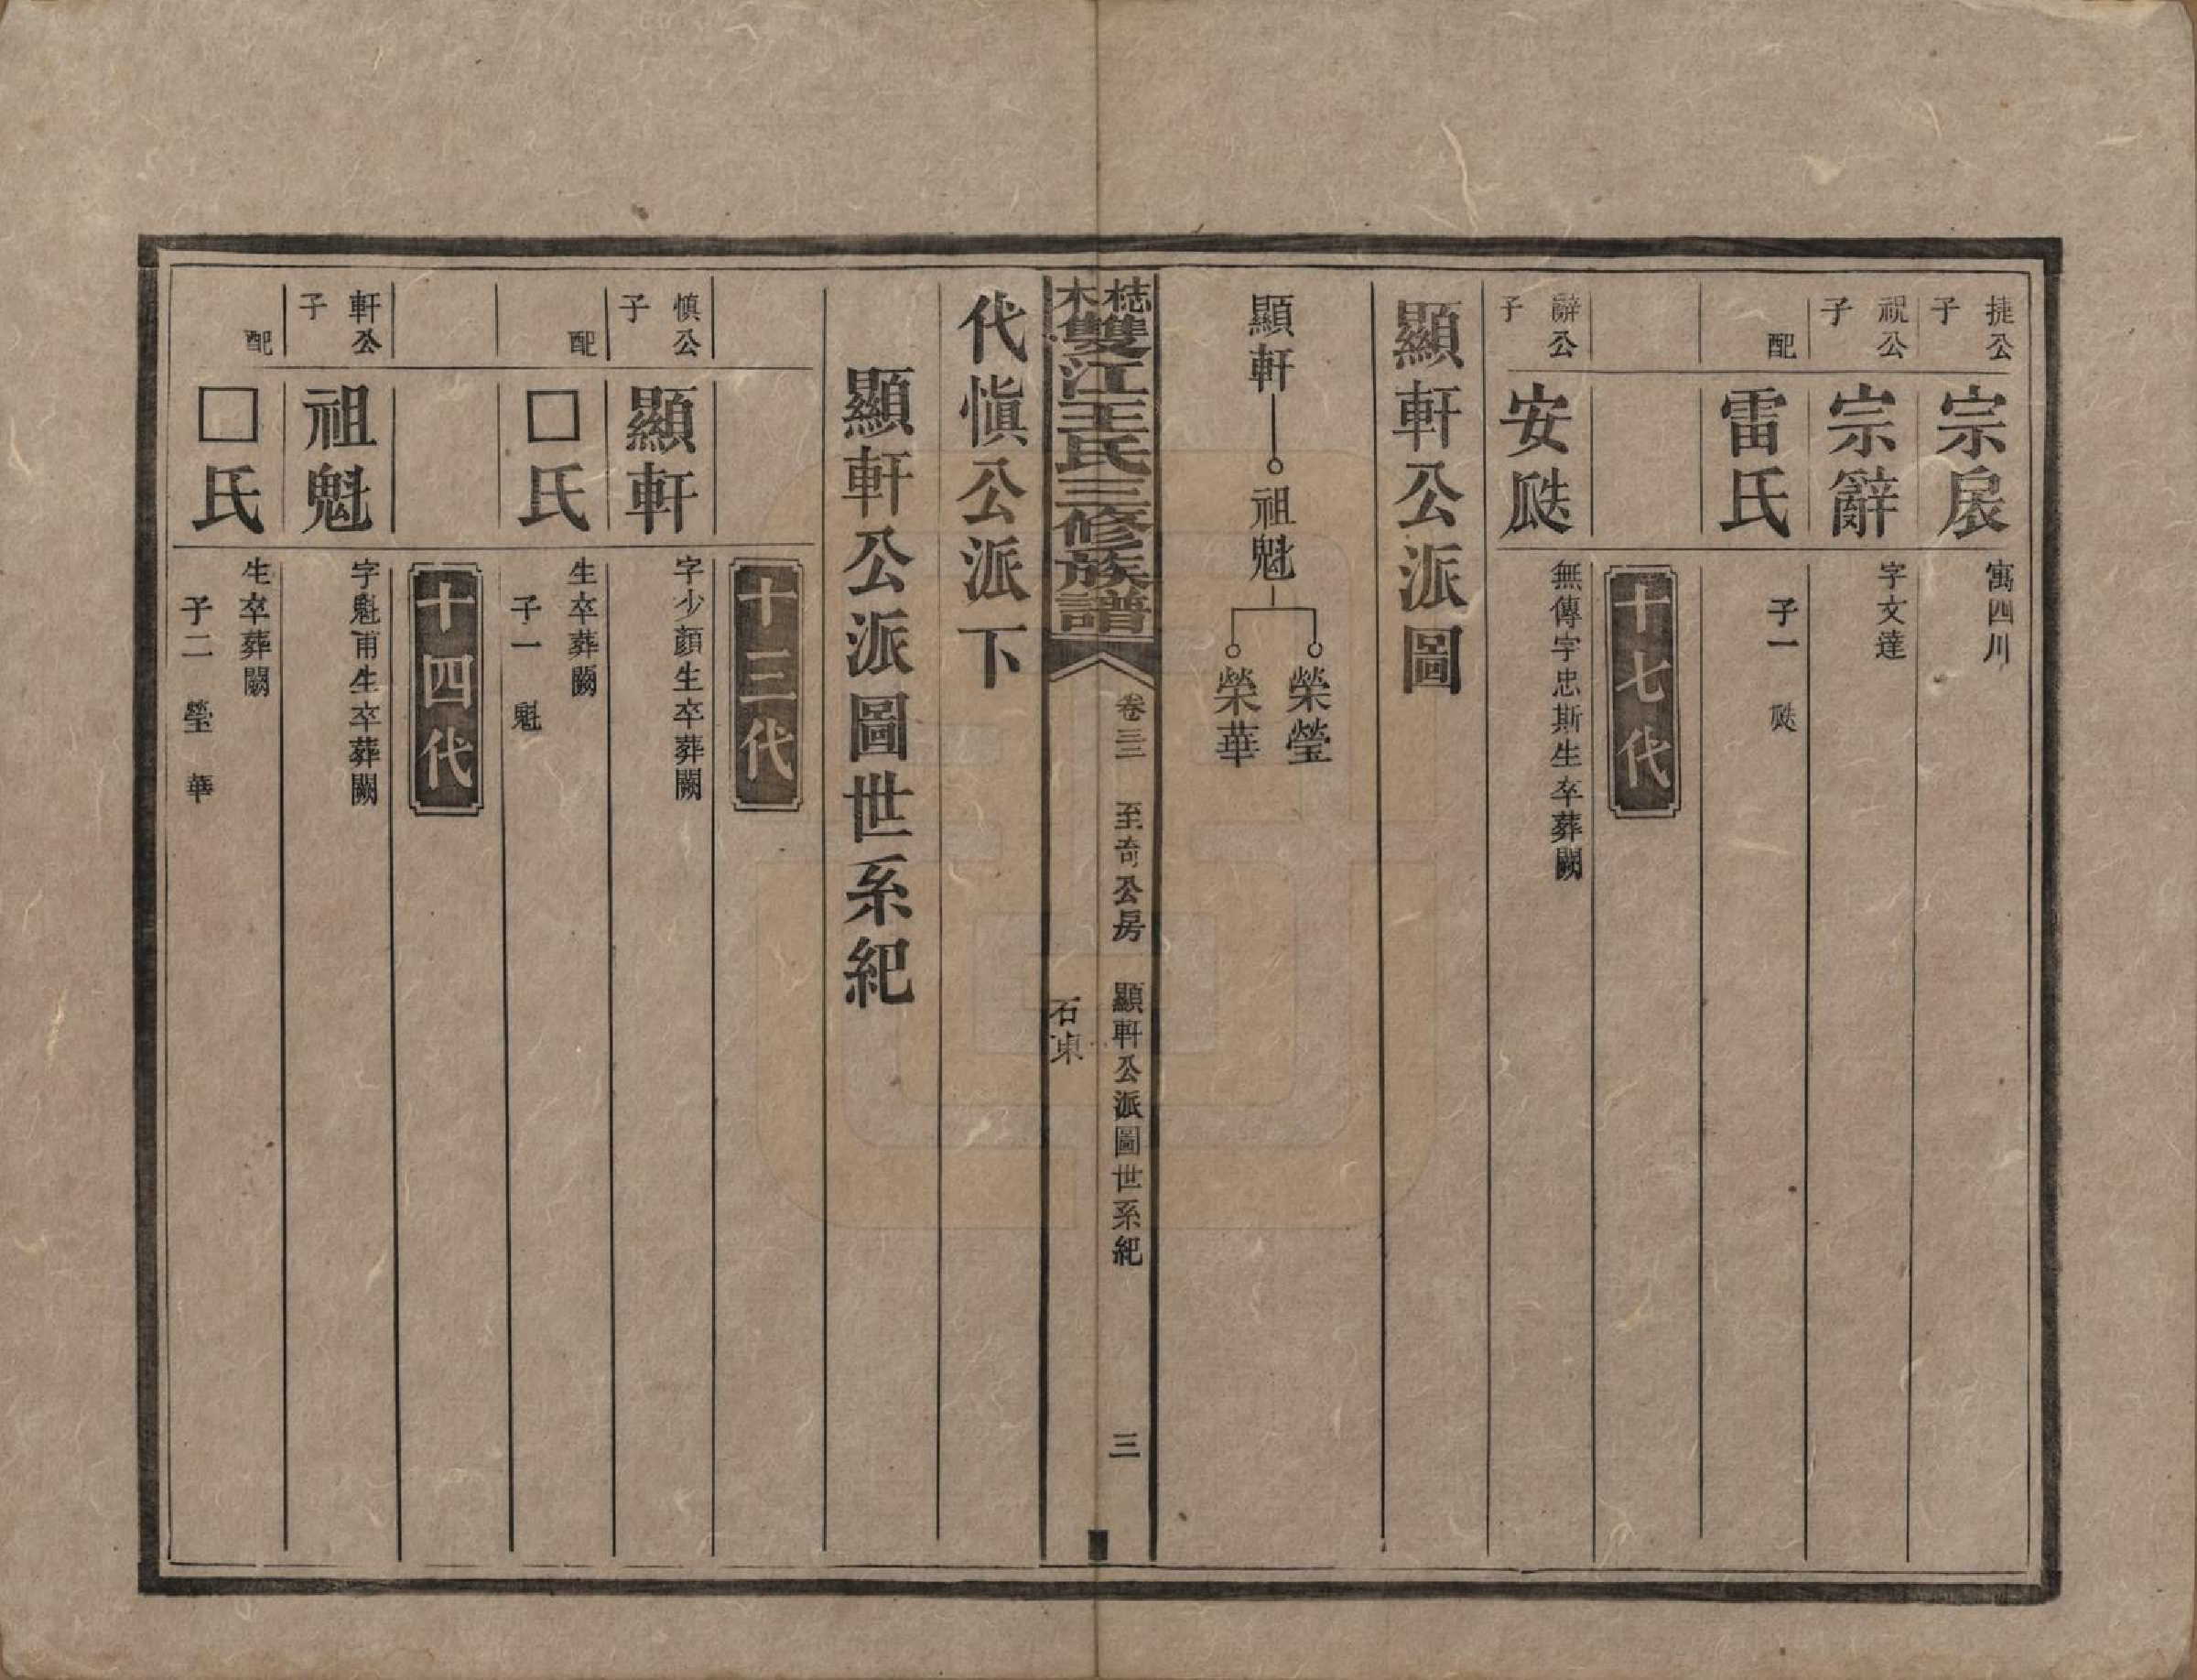 捷公子
宗扆
寓四川
祝公子
宗辭
字文達
配
雷氏
子一 瓞
十七代
辭公子
安瓞
無傳字忠斯生卒葬闕
顯軒公派圖
顯軒
祖魁
榮瑩
榮華
梽木
雙江王氏三修族譜
卷三三 至奇公房 顯軒公派圖世系紀 三
石東
代慎公派下
顯軒公派圖世系紀
十三代
慎公子
顯軒
字少顏生卒葬闕
配
□氏
生卒葬闕
子一 魁
十四代
軒公子
祖魁
字魁甫生卒葬闕
配
□氏
生卒葬闕
子二 瑩 華